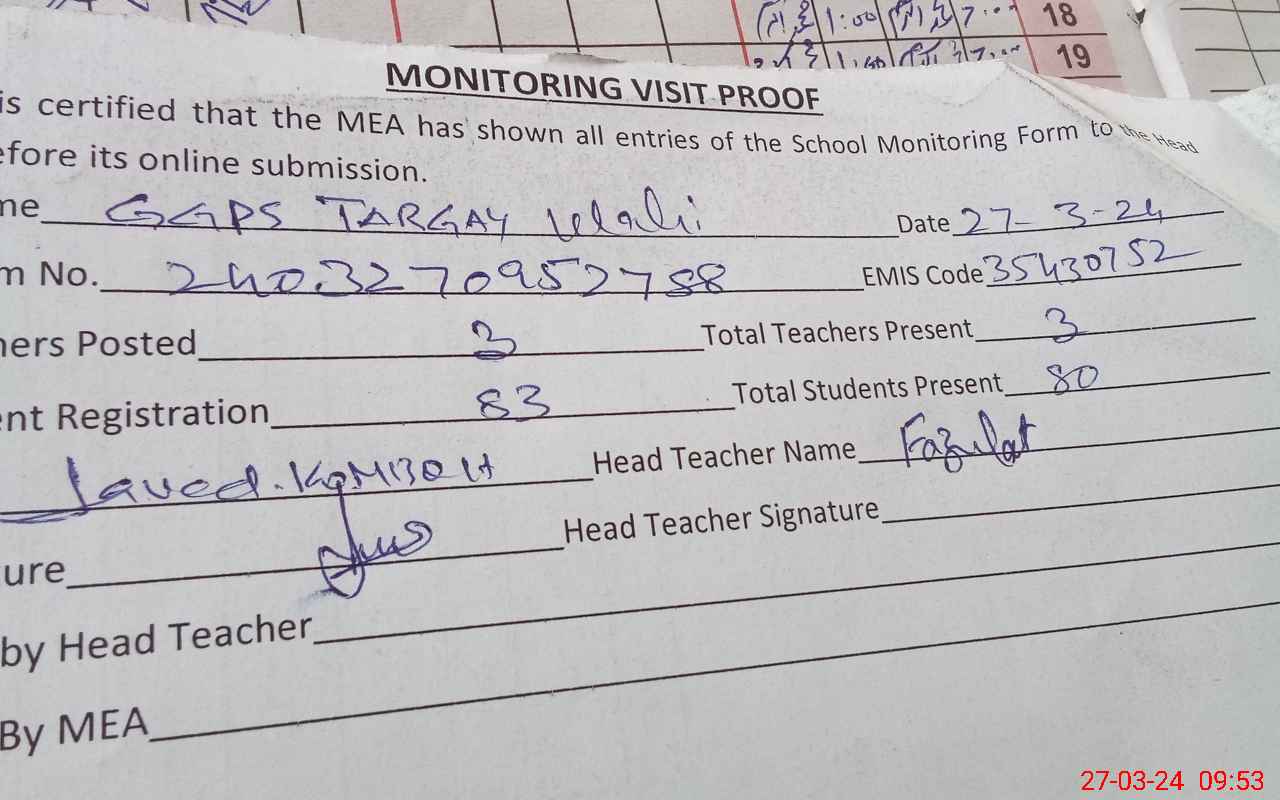 1:00 7:00 18
19
MONITORING VISIT PROOF
is certified that the MEA has shown all entries of the School Monitoring Form to the Head
efore its online submission.
me GGPS TARGAY Wali Date 27-3-24
m No. 2403270952788 EMIS Code 35430752
hers Posted 3 Total Teachers Present 3
ent Registration 83 Total Students Present 80
Javed.KAMBOH Head Teacher Name
ure Head Teacher Signature
by Head Teacher
By MEA
27-03-24 09:53